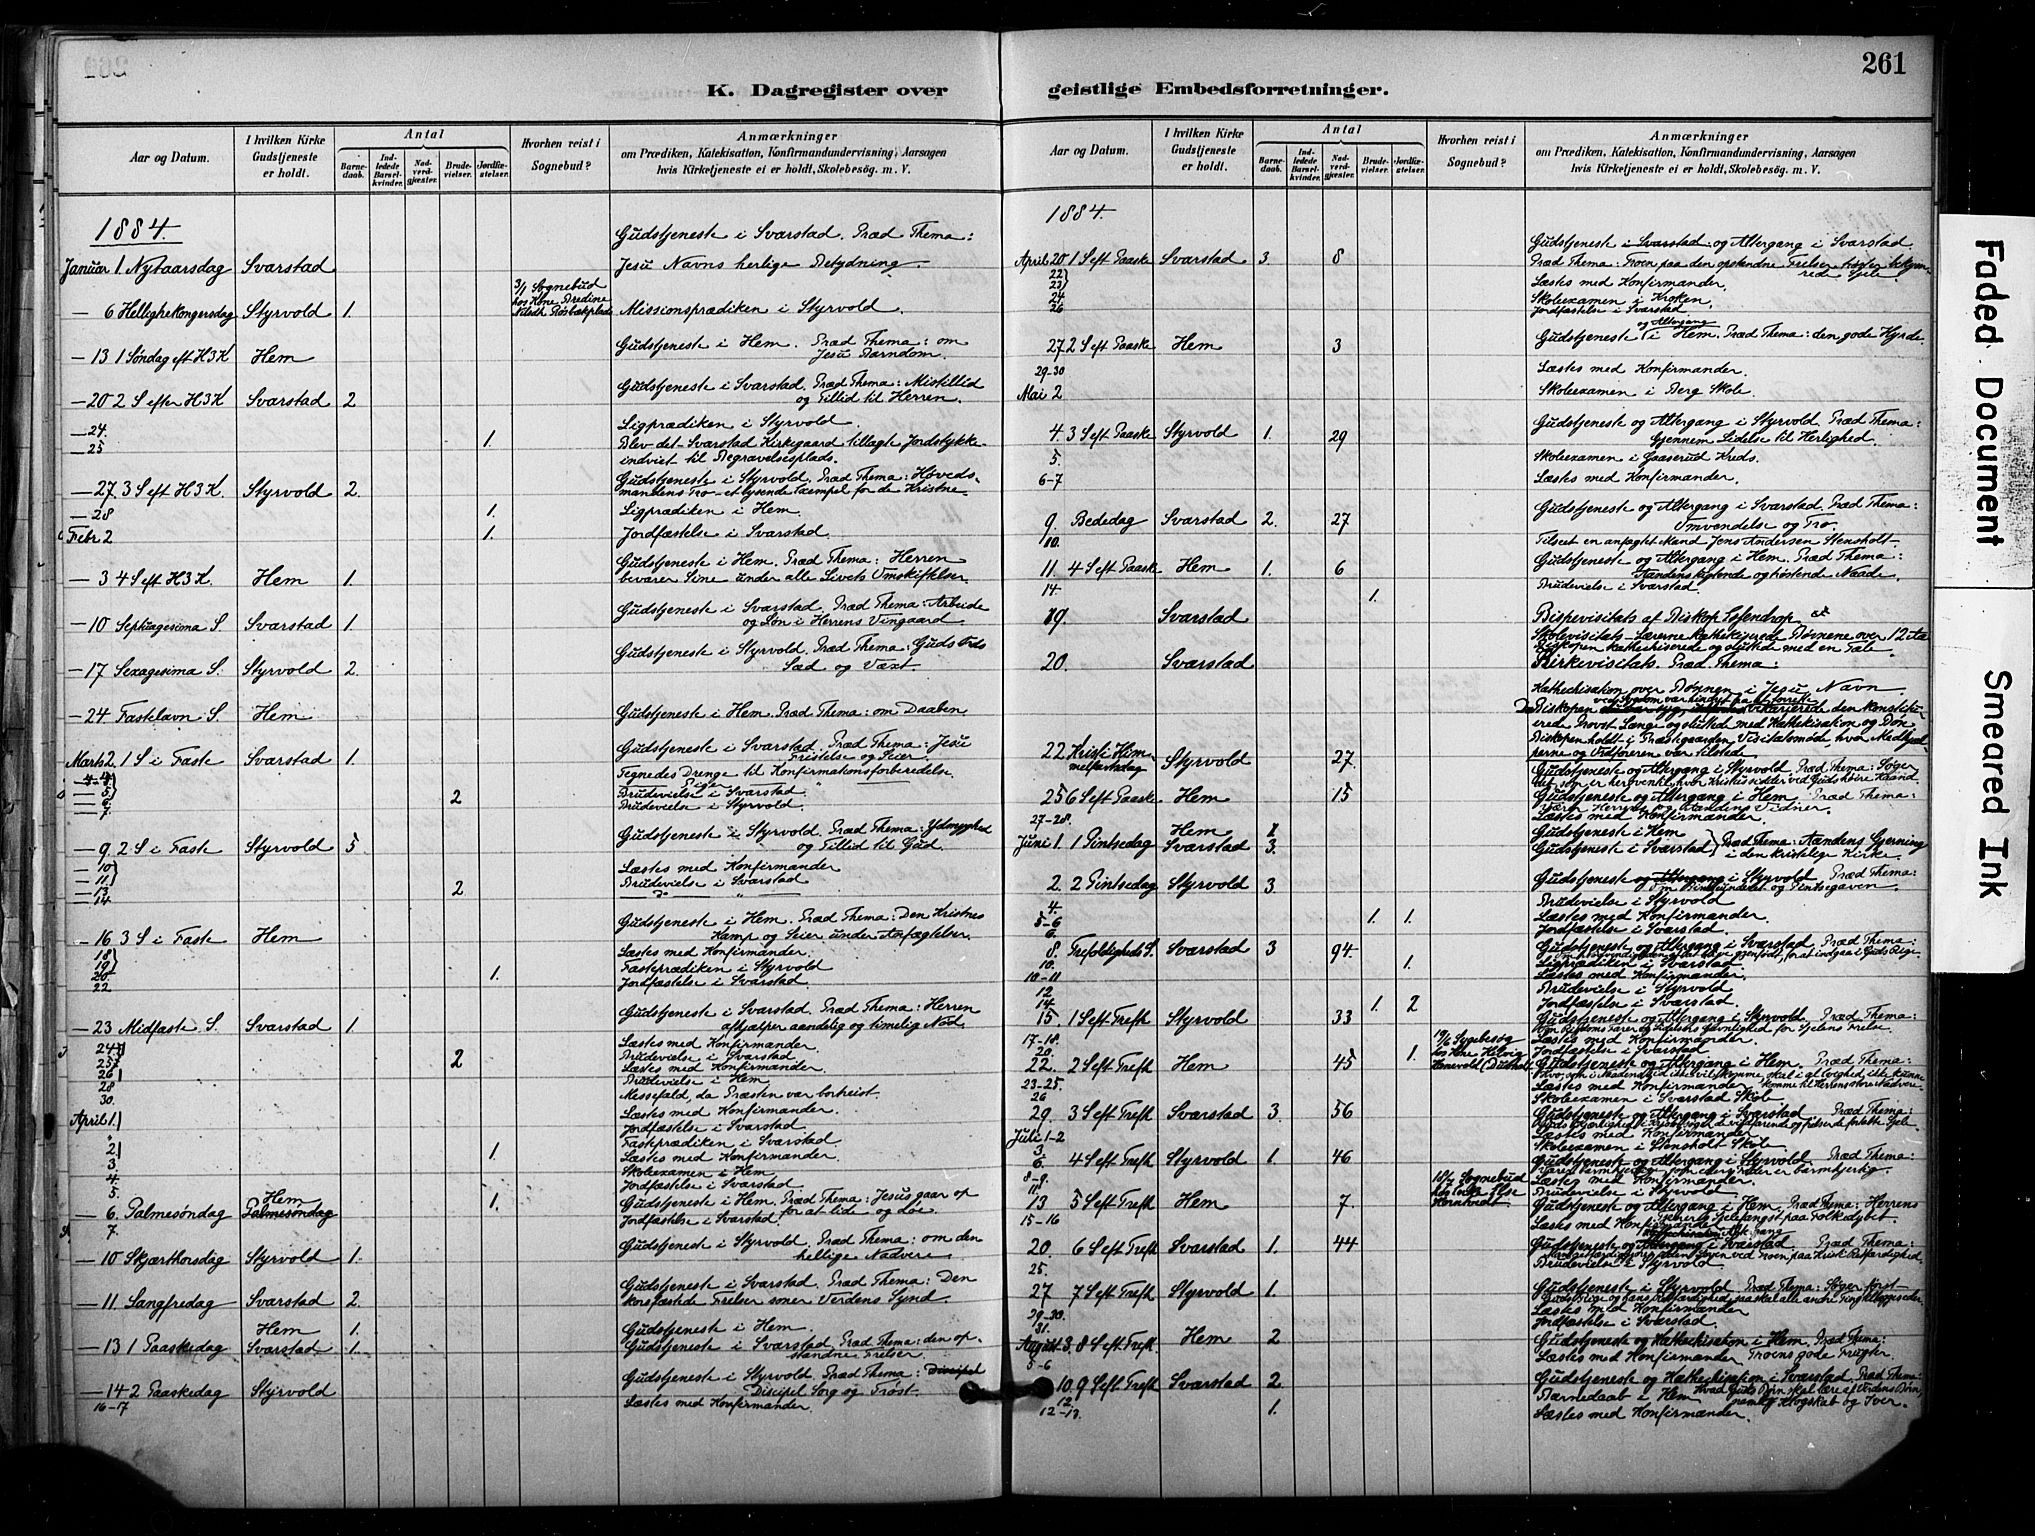 261
K. Dagregister over
geistlige Embedsforretninger.
Aar og Datum.
I hvilken Kirke Gudstjeneste er holdt.
Antal
Barnedaab.
Indledede Barselkvinder.
Nadverdgjæster.
Brudevielser.
Jordfæstelser.
Hvorhen reist i Sognebud?
Anmærkninger
om Prædiken, Katekisation, Konfirmandundervisning, Aarsagen
hvis Kirketjeneste ei er holdt, Skolebesög. m. V.
1884.
Gudstjeneste i Svarstad. Præd Thema:
Januar 1 Nytaarsdag Svarstad Jesu Navns herlige Betydning.
3/1 Sognebud
hos Kone Bredine
— 6 Hellighekongersdag Styrvold 1. Missionsprædiken i Styrvold.
Gudstjeneste i Hem. Præd Thema: om
— 13 1 Søndag eft H3K Hem Jesu Barndom.
Gudstjeneste i Svarstad. Præd Thema: Mistillid
— 20 2 S efter H3K Svarstad 2 og Tillid til Herren.
— 24. 1. Ligprædiken i Styrvold
— 25 Blev det Svarstad Kirkegaard tillagte Jordstykke
indviet til Begravelsesplads.
Gudstjeneste i Styrvold. Præd Thema: Høveds-
— 27 3 S eft H3K. Styrvold 2. mandens Tro – et lysende Exempel for de Kristne
— 28 1. Ligprædiken i Hem.
Febr 2 1. Jordfæstelse i Svarstad.
Gudstjeneste i Hem. Præd Thema: Herren
— 3 4 S eft H3K. Hem 1. bevarer Sine under alle Livets Omskiftelser.
Gudstjeneste i Svarstad. Præd Thema: Arbeide
— 10 Septuagesima S Svarstad 1. og Løn i Herrens Vingaard
Gudstjeneste i Styrvold. Præd Thema: Guds Ords
— 17 Sexagesima S. Styrvold 2. Sæd og Væxt
— 24 Fastelavn S. Hem Gudstjeneste i Hem. Præd Thema: om Daaben.
Gudstjeneste i Svarstad. Præd Thema: Jesu
Marts 2 1 S i Faste Svarstad 1. Fristelse og Seier.
4 Tegnedes Drenge til Konfirmationsforberedelse.
5 Piger
6 2 Brudevielse i Svarstad
7 Brudevielse i Styrvold.
Gudstjeneste i Styrvold. Præd Thema: Ydmyghed
— 9 2 S i Faste Styrvold 5 og Tillid til Gud.
— 10 Læstes med Konfirmander
— 11
— 13 2 Brudevielse i Svarstad
— 14
Gudstjeneste i Hem. Præd Thema: Den Kristnes
— 16 3 S i Faste Hem Kamp og Seier under Anfægtelser.
18 Læstes med Konfirmander.
19
20 1. Fasteprædiken i Styrvold
22 Jordfæstelse i Svarstad.
Gudstjeneste i Svarstad. Præd Thema: Herren
— 23 Midfaste S. Svarstad 1. afhjælper aandelig og timelig Nød.
24 Læstes med Konfirmander.
25 2 Brudevielse i Svarstad
26 Læstes med Konfirmander.
28 Brudevielse i Hem
30. Messefald, da Præsten var bortreist.
April 1. Læstes med Konfirmander.
" Jordfæstelse i Svarstad.
Fasteprædiken i Svarstad.
2 1 Læstes med Konfirmander.
3. Skoleexamen i Hem
4. Jordfæstelse i Svarstad
5. Hem Gudstjeneste i Hem. Præd Thema: Jesus gaar op
— 6. Palmesøndag Palmesøndag 1. for at lide og døe.
7. Jordfæstelse i Svarstad.
Gudstjeneste i Styrvold. Præd Thema: om den
— 10 Skjærthorsdag Styrvold 1. hellige Nadvere
Gudstjeneste i Svarstad. Præd Thema: Den
— 11 Langfredag Svarstad 2. korsfæstede Frelser soner Verdens Synd.
Hem 1. Gudstjeneste i Hem.
— 13 1 Paaskedag Svarstad 1. Gudstjeneste i Svarstad Præd Thema: den op-
standne Frelser
Gudstjeneste i Styrvold. Præd Thema: Discipel
— 14 2 Paaskedag Styrvold Discipel Sorg og Trøst
16–17 Læstes med Konfirmander.
Aar og Datum.
I hvilken Kirke Gudstjeneste er holdt.
Antal
Barnedaab.
Indledede Barselkvinder.
Nadverdgjæster.
Brudevielser.
Jordfæstelser.
Hvorhen reist i Sognebud?
Anmærkninger
om Prædiken, Katekisation, Konfirmandundervisning, Aarsagen
hvis Kirketjeneste ei er holdt, Skolebesög. m. V.
1884.
Gudstjeneste i Svarstad og Altergang i Svarstad
April 20 1 S eft Paaske Svarstad 3. 8 Præd Thema: Troen paa den opstandne Frelser
22
23 Læstes med Konfirmander.
24 Skoleexamen i Kroken
26 Jordfæstelse i Svarstad
og Altergang
27 2 S eft Paaske Hem 3 Gudstjeneste i Hem. Præd Thema: den gode Hyrde.
29–30 Læstes med Konfirmander.
Mai 2 Skoleexamen i Berg Skole.
Gudstjeneste og Altergang i Styrvold. Præd Thema:
4. 3 S eft Paaske Styrvold 1. 29 Gjennem Lidelse til Herlighed.
5. Skoleexamen i Gaaserud Kreds.
6–7 Læstes med Konfirmander.
Gudstjeneste og Altergang i Svarstad. Præd Thema:
9. Bededag Svarstad 2. 27 Omvendelse og Tro.
10. Tilseet en anfægtet Mand Jens Andersen Stensholt.
Gudstjeneste og Altergang i Hem. Præd Thema:
11. 4 S eft Paaske Hem 1. 6 Aandens Naade.
14. 1. Brudevielse i Svarstad.
19. Svarstad Bispevisitats af Biskop Essendrop
Skolevisitats – Lærerne kathekiserede Børnene over
Biskopen kathekiserede og sluttede med en Tale
20. Svarstad Kirkevisitats. Præd Thema:
Kathechisation over Bønnen i Jesu Navn
Biskopen
erede Provst Lange og sluttede med Kathekisation og Bøn
Biskopen holdt i Præstegaarden Visitatsmøde, hvor Medhjæl-
22 Kristi Him- Styrvold 27. perne og Ordføreren var tilstede
melfartsdag Gudstjeneste og Altergang i Styrvold. Præd Thema: Søger
det, som er herovenfra, hvor Kristus sidder ved Guds høire Haand
25 6 S eft Paaske Hem 15 Gudstjeneste og Altergang i Hem. Præd Thema:
27–28. Læstes med Konfirmander.
Hem Gudstjeneste i Hem
Juni 1. 1 Pintsedag Svarstad 3. Gudstjeneste i Svarstad Præd Thema: Aandens Gjerning
i den kristelige Kirke.
2. 2 Pintsedag Styrvold 3. Gudstjeneste og Altergang i Styrvold. Præd Thema:
Om Pintseunderet og Pintsegaven.
4. 1. 1. Brudevielse i Styrvold
5–6 Læstes med Konfirmander.
6. Jordfæstelse i Svarstad.
8. Trefoldigheds S. Svarstad 3 94 Gudstjeneste og Altergang i Svarstad. Præd Thema:
10. 1. Ligprædiken i Svarstad
10–11 Læstes med Konfirmander.
12 Brudevielse i Styrvold
14 1. 2 Jordfæstelse i Svarstad.
15. 1 S eft Trefh Styrvold 33 Gudstjeneste og Altergang i Styrvold. Præd Thema:
17–18. 19/6 Sygebesøg Læstes med Konfirmander.
20. 1. Jordfæstelse i Svarstad
22. 2 S eft Trefh Hem 45 Gudstjeneste og Altergang i Hem. Præd Thema:
23–25. Læstes med Konfirmander
26 Skoleexamen i Svarstad Skole.
29 3 S eft Trefh Svarstad 3. 56 Gudstjeneste og Altergang i Svarstad. Præd Thema:
Juli 1–2 Læstes med Konfirmander.
3. Skoleexamen i Stensholt Skole
6. 4 S eft Trefh Styrvold 1. 46 Gudstjeneste og Altergang i Styrvold. Præd Thema:
Værer barmhjertige, som eders Fader er barmhjertig.
8–9. Læstes med Konfirmander.
11. Sognebud Brudevielse i Styrvold
13 5 S eft Trefh Hem 7. Gudstjeneste og Altergang i Hem. Præd Thema: Herrens
15–16 Læstes med Konfirmander
20. 6 S eft Trefh Svarstad 1. 44 Gudstjeneste og Altergang i Svarstad. Præd Thema:
25. Brudevielse i Styrvold
27 7 S eft Trefh Styrvold 1. Gudstjeneste i Styrvold. Præd Thema: Søger først
29–30. Læstes med Konfirmander
31. Jordfæstelse i Svarstad.
August 3. 8 S eft Trefh Hem 2 Gudstjeneste og Kathechisation i Hem. Præd Thema:
5–6 Læstes med Konfirmander Troens gode Frugter.
10. 9 S eft Trefh Svarstad 2 Gudstjeneste og Kathechisation i Svarstad. Præd Thema:
12. 1. Barnedaab i Hem
12–13. Læstes med Konfirmander.
Faded Document
Smeared Ink